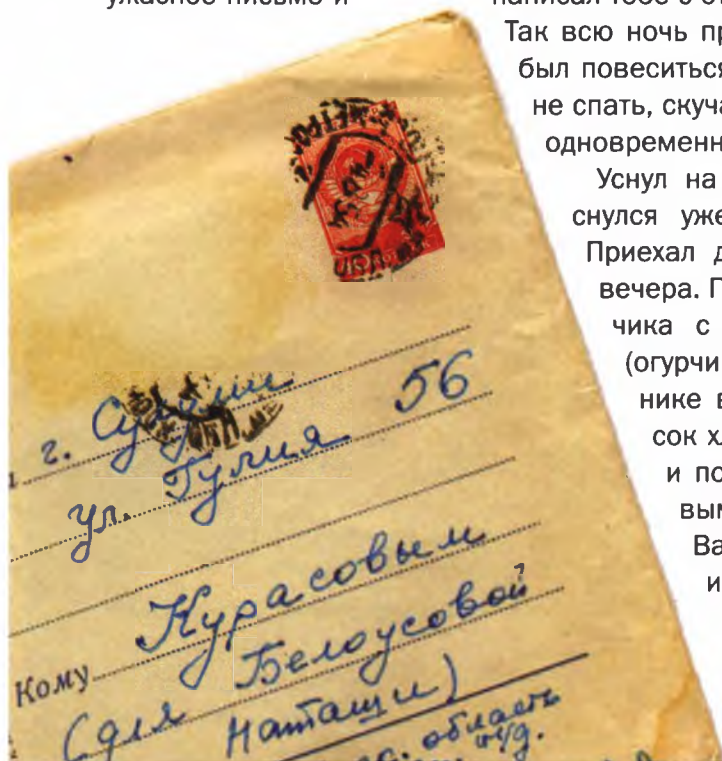 ужасное письмо и
написал тебе
Так всю ночь пр
был повеситься
не спать, скуча
одновременн
Уснул на
снулся уже
Приехал д
вечера. П
чика с
(огурчи
нике в
сок хл
и по
вым
Ва
и
г. Сухуми
ул. Гулия 56
Курасовым
Кому
(для Белоусовой
Наташи)
область